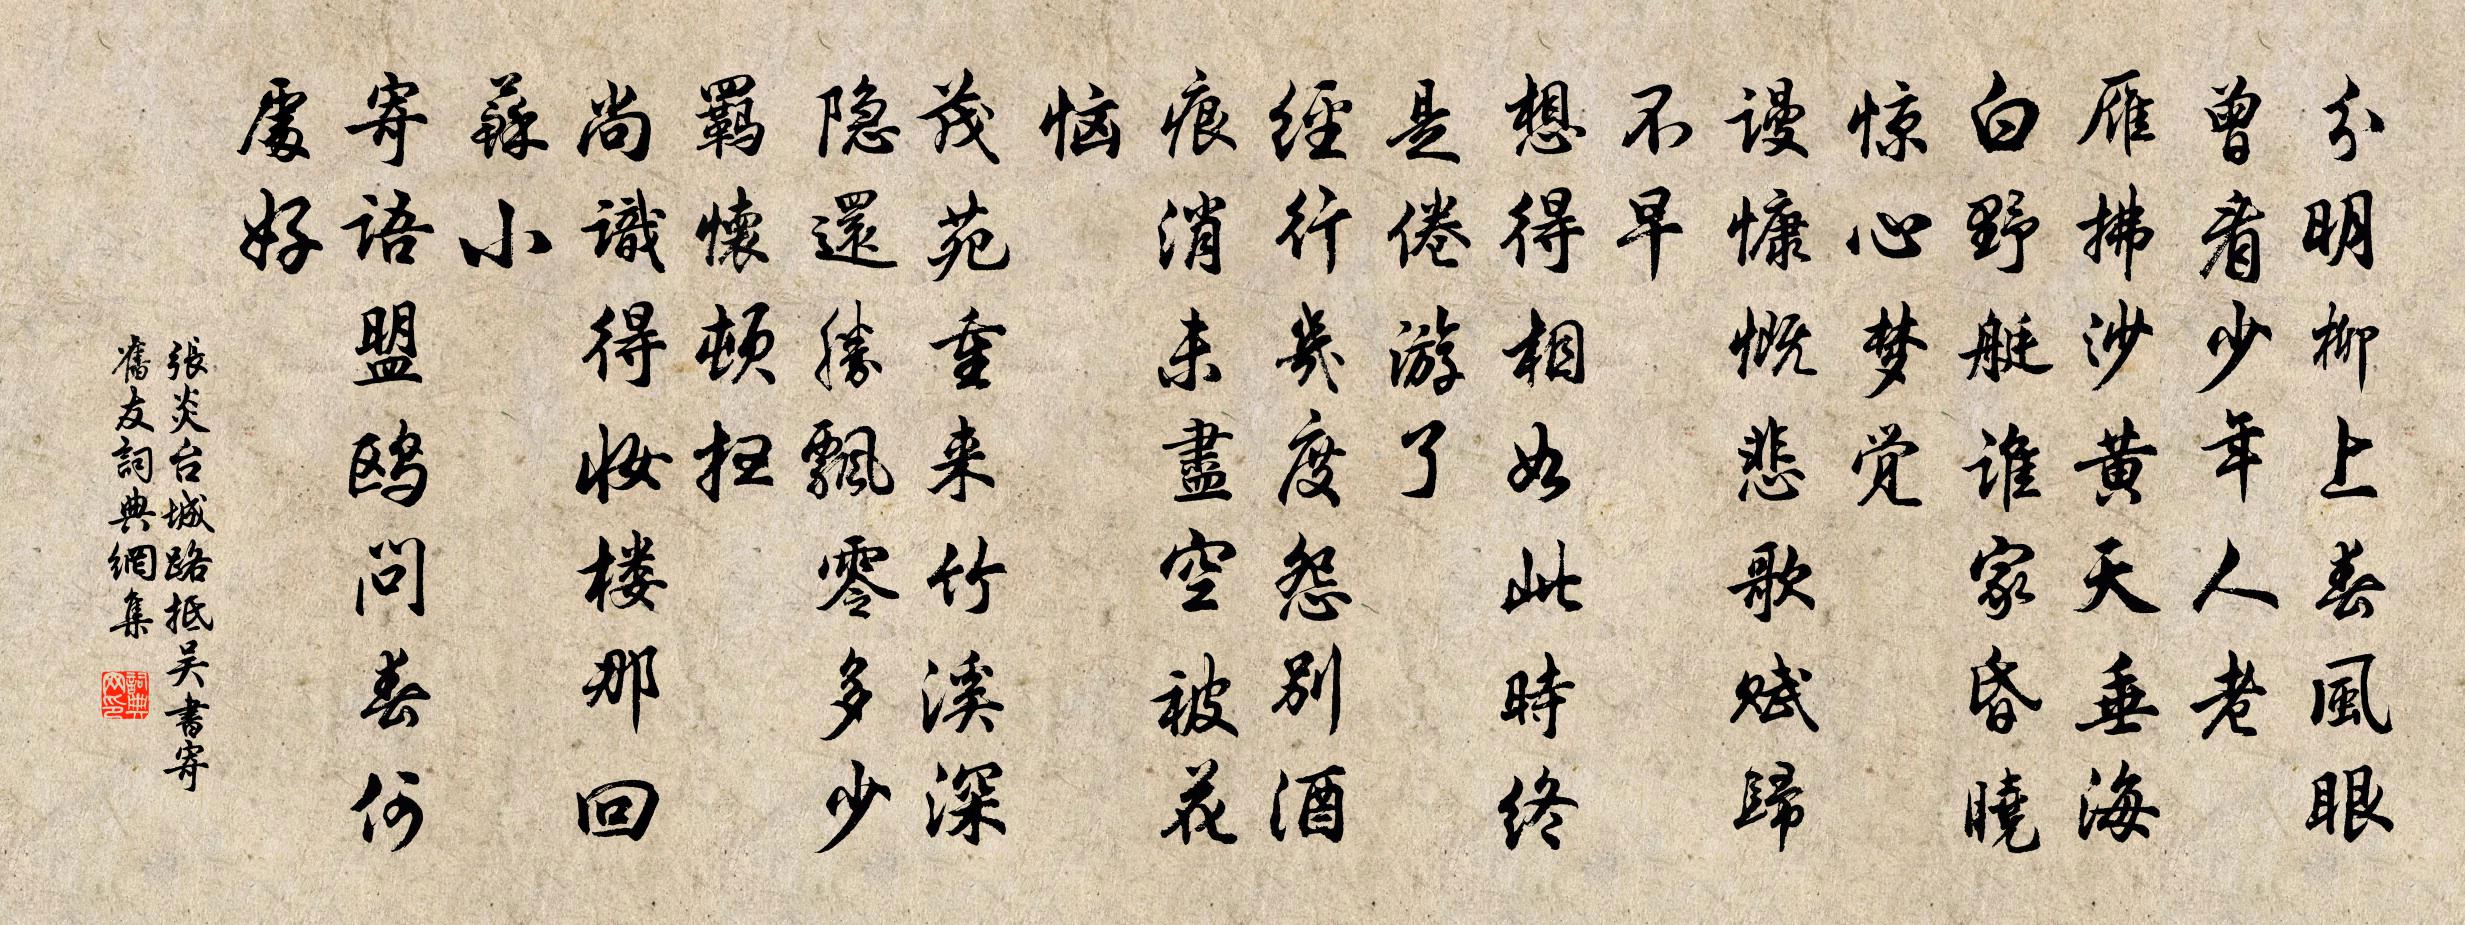 分明柳上春風眼
曾看少年人老
雁拂沙黄天垂海
白野艇谁家昏曉
惊心梦觉
谩慷慨悲歌赋歸
不早
想得相如此時終
是倦游了
經行幾度怨别酒
痕消未盡空被花
恼
茂苑重来竹溪深
隐還勝飄零多少
羈懷頓扫
尚識得妝楼那回
蘇小
寄语盟鸥问春何
處好
張炎台城路抵吴書寄
舊友詞典網集
詞典网印